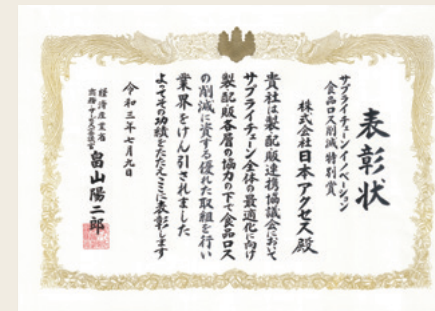 表彰状
サプライチェーンイノベーション
食品ロス削減特別賞
株式会社日本アクセス殿
貴社は製配販連携協議会において
サプライチェーン全体の最適化に向け
製配販各層の協力の下で食品ロス
の削減に資する優れた取組を行い
業界をけん引されました
よってその功績をたたえここに表彰します
令和三年七月九日
経済産業省
商務・サービス審議官
畠山陽二郎